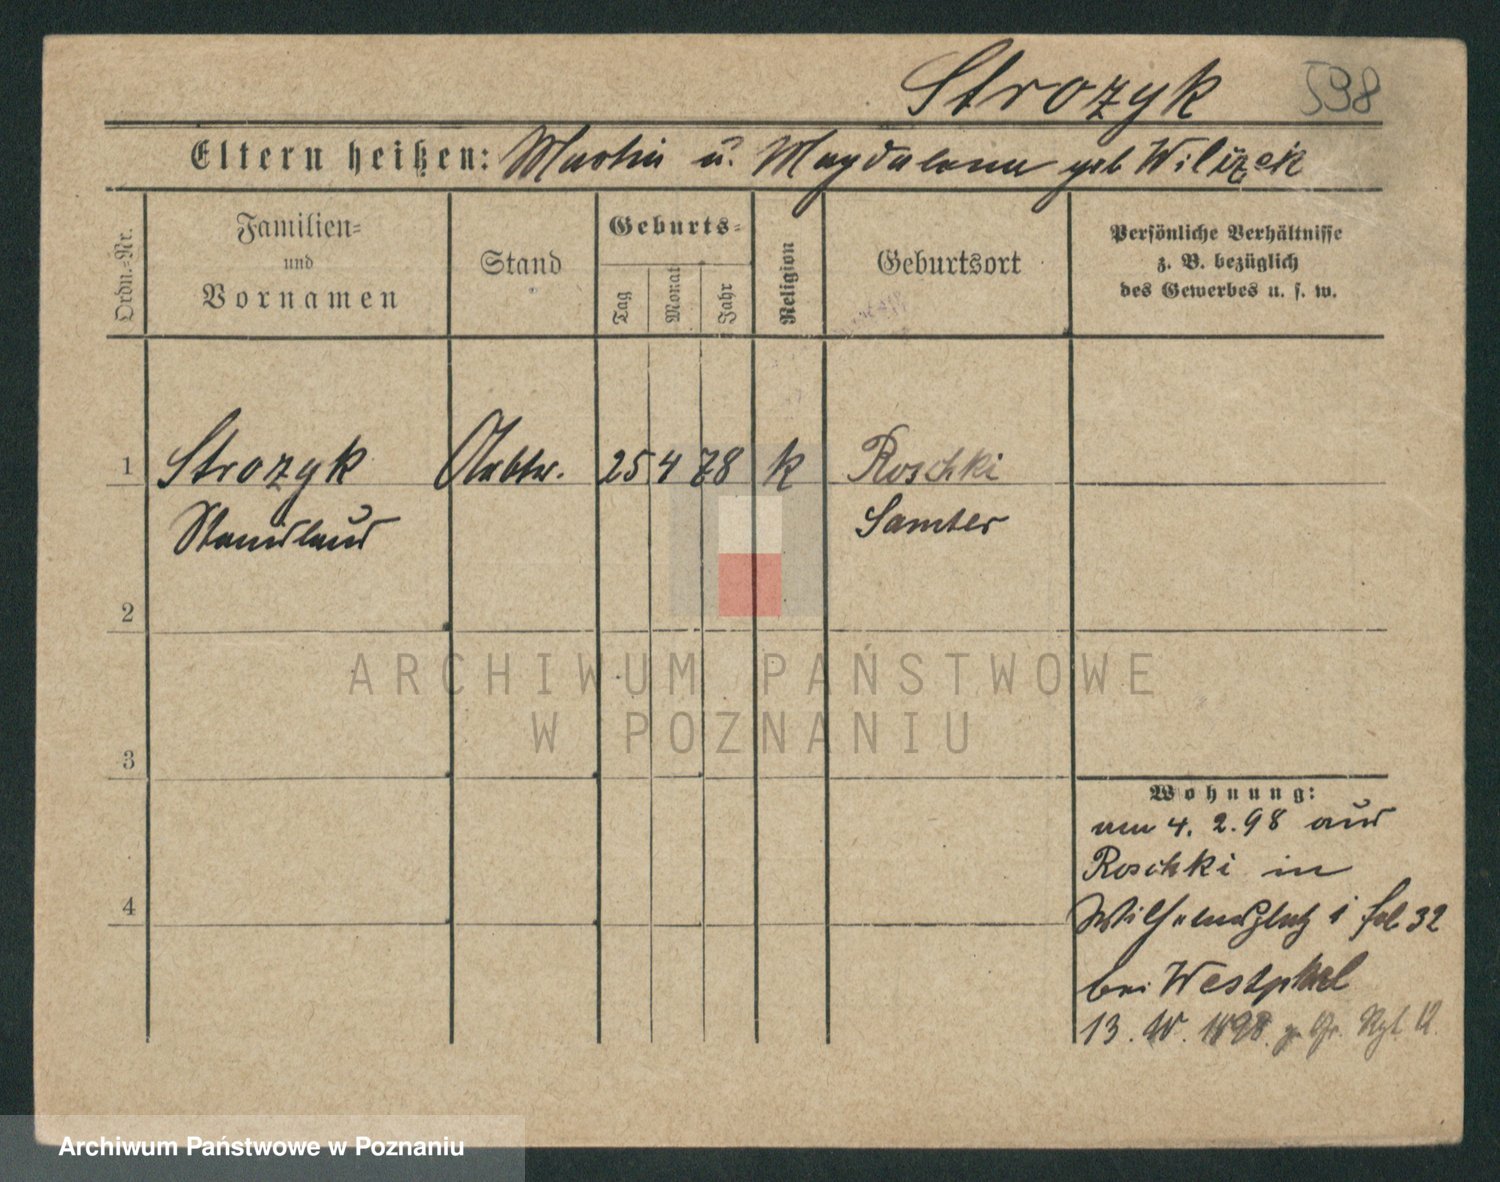 Strozyk 598
Eltern heißen: Martin u. Magdalena geb Wilizek
Ordn.-Nr.
Familien-
und
Vornamen
Stand
Geburts-
Tag
Monat
Jahr
Religion
Geburtsort
Persönliche Verhältnisse
z. B. bezüglich
des Gewerbes u. s. w.
1 Strozyk Arbtr. 25 4 78 k Roschki
Stanislaus Samter
2
3
4
Wohnung:
am 4. 2. 98 aus
Roschki in
Wilhelmsplatz
bei Westphal
13. 10. 1898.
ARCHIWUM PAŃSTWOWE
W POZNANIU
Archiwum Państwowe w Poznaniu